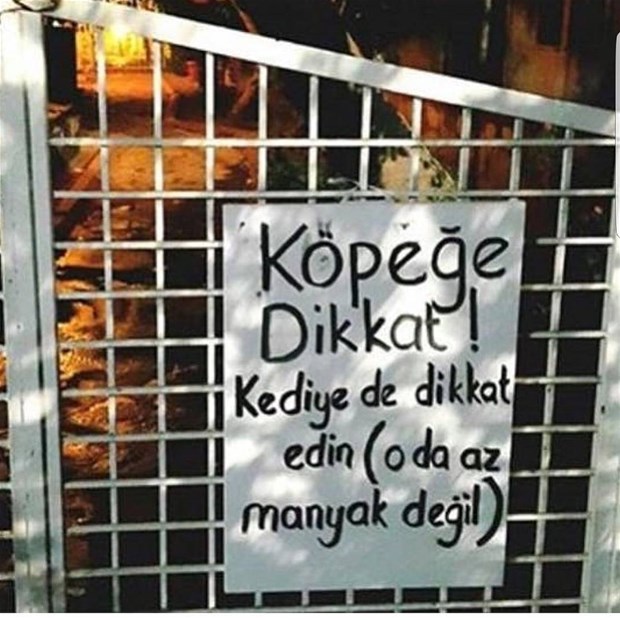 Köpeğe
Dikkat!
Kediye de dikkat
edin (o da az
manyak değil)